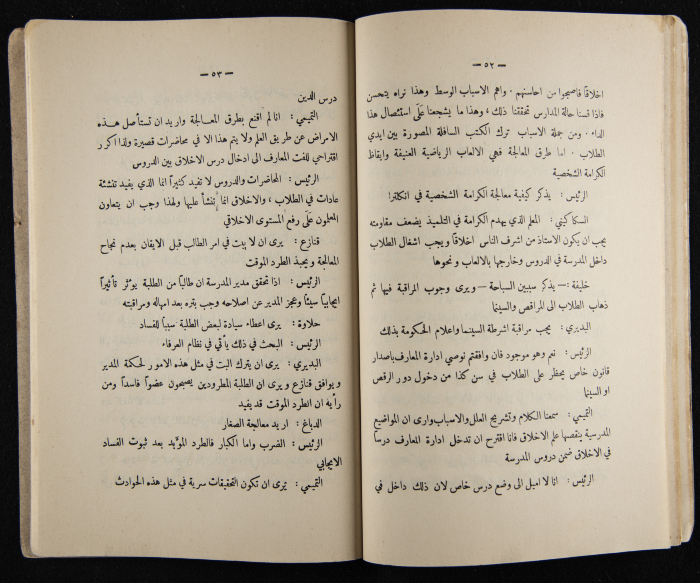 — ٥٢ —
اخلاقاً فاصبحوا من احاسنهم . واهم الاسباب الوسط وهذا نراه يتحسن
فاذا قسنا حالة المدارس تحققنا ذلك ، وهذا ما يشجعنا على استئصال هذا
الداء . ومن جملة الاسباب ترك الكتب السافلة المصورة بين ايدي
الطلاب . اما طرق المعالجة فهي الالعاب الرياضية العنيفة وايقاظ
الكرامة الشخصية
الرئيس : يذكر كيفية معالجة الكرامة الشخصية في انكلترا
السكاكيني : المعلم الذي يهدم الكرامة في التلميذ يضعف مقاومته
يجب ان يكون الاستاذ من اشرف الناس اخلاقاً ويجب اشغال الطلاب
داخل المدرسة في الدروس وخارجها بالالعاب ونحوها
خليفة :— يذكر سببين السباحة — ويرى وجوب المراقبة فيها ثم
ذهاب الطلاب الى المراقص والسينما
البديري : يجب مراقبة اشرطة السينما واعلام الحكومة بذلك
الرئيس : نعم وهو موجود فان وافقتم نوصي ادارة المعارف باصدار
قانون خاص يحظر على الطلاب في سن كذا من دخول دور الرقص
او السينما
التميمي : سمعنا الكلام وتشريح العلل والاسباب وارى ان المواضيع
المدرسية ينقصها علم الاخلاق فانا اقترح ان تدخل ادارة المعارف درساً
في الاخلاق ضمن دروس المدرسة
الرئيس : انا لا اميل الى وضع درس خاص لان ذلك داخل في
— ٥٣ —
درس الدين
التميمي : انا لم اقنع بطرق المعالجة واريد ان تستأصل هذه
الامراض عن طريق العلم ولا يتم هذا الا في محاضرات قصيرة ولذا اكرر
اقتراحي للفت المعارف الى ادخال درس الاخلاق بين الدروس
الرئيس : المحاضرات والدروس لا تفيد كثيراً انما الذي يفيد تنشئة
عادات في الطلاب ، والاخلاق انما تنشأ عليها ولهذا وجب ان يتعاون
المعلمون على رفع المستوى الاخلاقي
قنازع : يرى ان لا يبت في امر الطالب قبل الايقان بعدم نجاح
المعالجة ويحبذ الطرد الموقت
الرئيس : اذا تحقق مدير المدرسة ان طالباً من الطلبة يوثر تأثيراً
ايجابياً سيئاً وعجز المدير عن اصلاحه وجب بتره بعد امهاله ومراقبته
حلاوة : يرى اعطاء سيادة لبعض الطلبة سبباً للفساد
الرئيس : البحث في ذلك يأتي في نظام العرفاء
البديري : يرى ان يترك البت في مثل هذه الامور لحكمة المدير
ويوافق قنازع ويرى ان الطلبة المطرودين يصبحون عضواً فاسداً ومن
رأيه ان الطرد الموقت قد يفيد
الدباغ : اريد معالجة الصغار
الرئيس : الضرب واما الكبار فالطرد المؤبد بعد ثبوت الفساد
الايجابي
التميمي : يرى ان تكون التحقيقات سرية في مثل هذه الحوادث